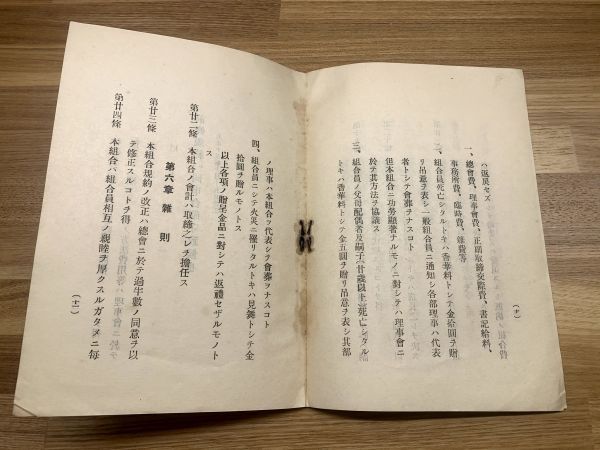 ハ返戻セズ
一、總會費、理事會費、正副取締交際費、書記給料、
事務所費、臨時費、雜費等
二、組合員死亡シタルトキハ香華料トシテ金拾圓ヲ贈
リ吊意ヲ表シ一般組合員ニ通知シ各部理事ハ代表
者トシテ會葬ヲナスコト
但本組合ニ功勞顯著ナルモノニ對シテハ理事會ニ
於テ其方法ヲ協議ス
三、組合員ノ父母配偶者及嗣子(廿歲以上)死亡シタル
トキハ香華料トシテ金五圓ヲ贈リ吊意ヲ表シ其部
(十)
ノ理事ハ本組合ヲ代表シテ會葬ヲナスコト
四、組合員ニシテ火災ニ罹リタルトキハ見舞トシテ金
拾圓ヲ贈ルモノトス
以上各項ノ贈呈金品ニ對シテハ返禮セザルモノト
ス
第廿二條 本組合ノ會計ハ取締之レヲ擔任ス
第六章 雜則
第廿三條 本組合規約ノ改正ハ總會ニ於テ過半數ノ同意ヲ以
テ修正スルコトヲ得
第廿四條 本組合ハ組合員相互ノ親睦ヲ厚クスルガタメニ每
(十一)